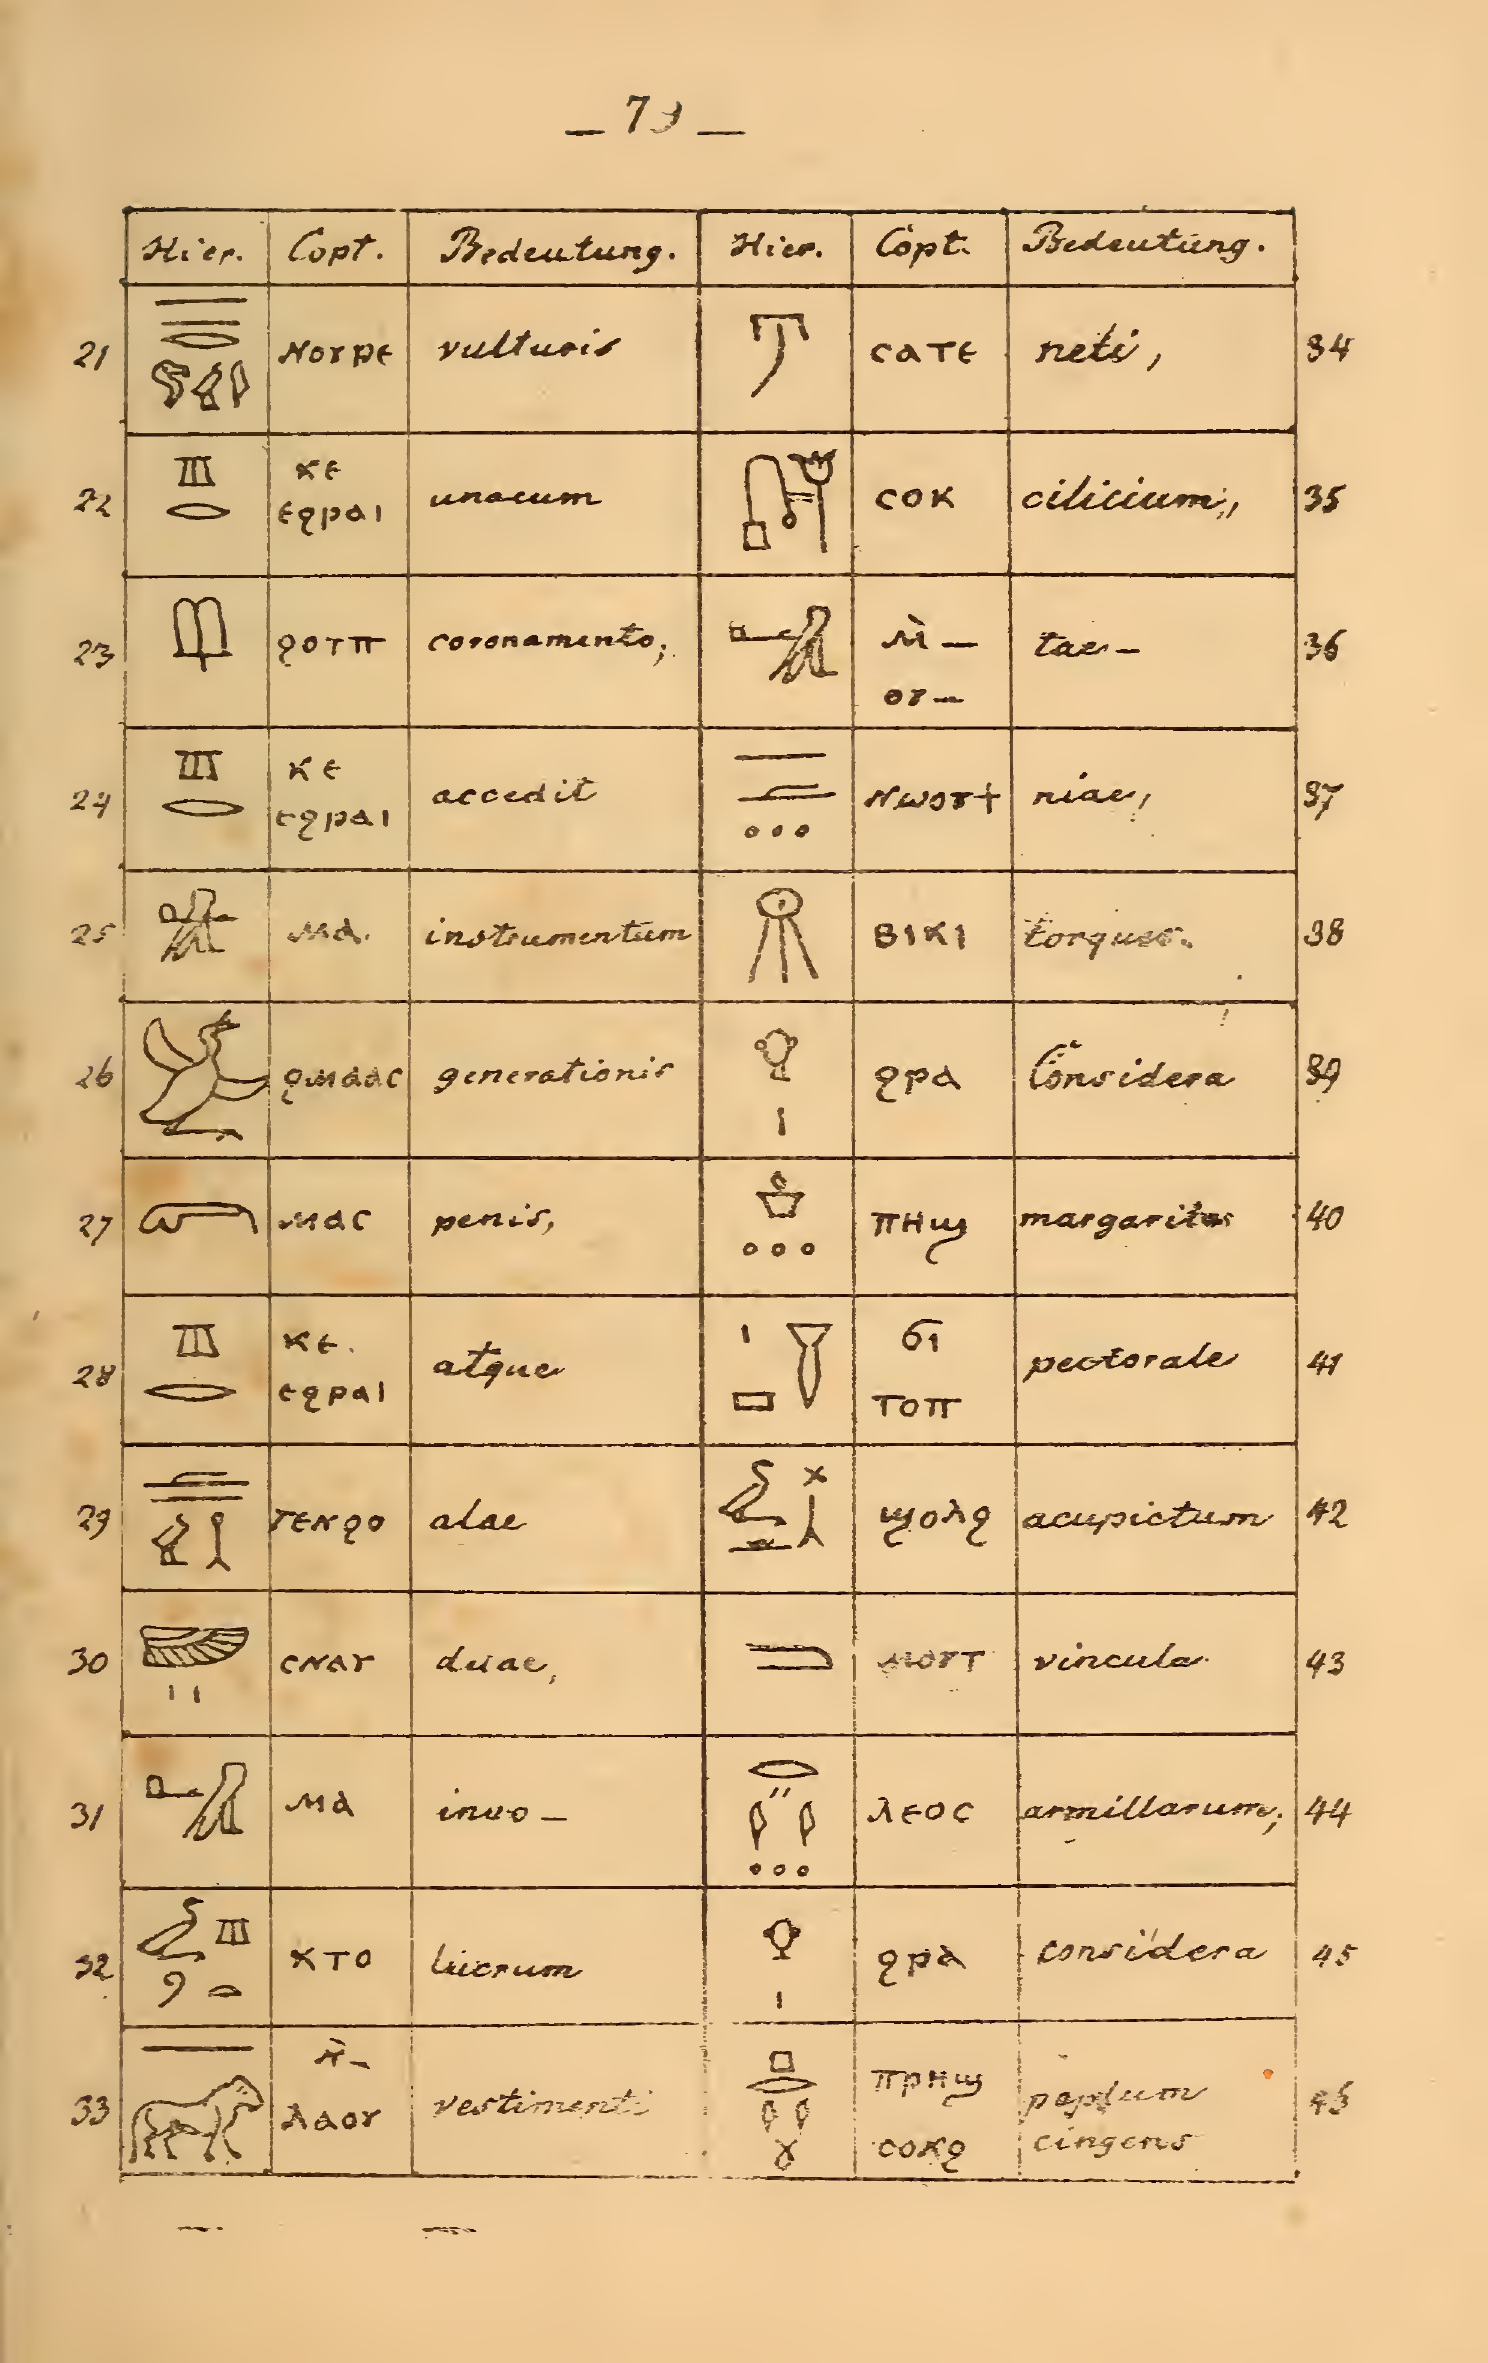 — 79 —
Hier. Copt. Bedeutung. Hier. Copt. Bedeutung.
21 ⲛⲟⲩⲣⲉ vulturis ⲥⲁⲧⲉ neti, 34
22 ⲕⲉ ⲉϩⲣⲁⲓ unacum ⲥⲟⲕ cilicium,, 35
23 ϩⲟⲧⲡ coronamento; ⲙ̀— ⲟⲩ— tae— 36
24 ⲕⲉ ⲉϩⲣⲁⲓ accedit ⲛⲱⲟⲩϯ niae, 37
25 ⲙⲁ. instrumentum ⲃⲓⲕⲓ torques. 38
26 ϩⲙⲁⲁⲥ generationis ϩⲣⲁ Considera 39
27 ⲙⲁⲥ penis, ⲡⲏϣ margaritas 40
28 ⲕⲉ. ⲉϩⲣⲁⲓ atque ϭⲓ ⲧⲟⲡ pectorale 41
29 ⲧⲉⲛϩⲟ alae ϣⲟⲗϩ acupictum 42
30 ⲥⲛⲁⲩ duae, ⲙⲟⲩⲧ vincula 43
31 ⲙⲁ invo— ⲗⲉⲟⲥ armillarum; 44
32 ⲕⲧⲟ lucrum ϩⲣⲁ considera 45
33 ⲛ̀— ⲗⲁⲟⲩ vestimenti ⲡⲣⲏϣ ⲥⲟⲕϩ peplum cingens